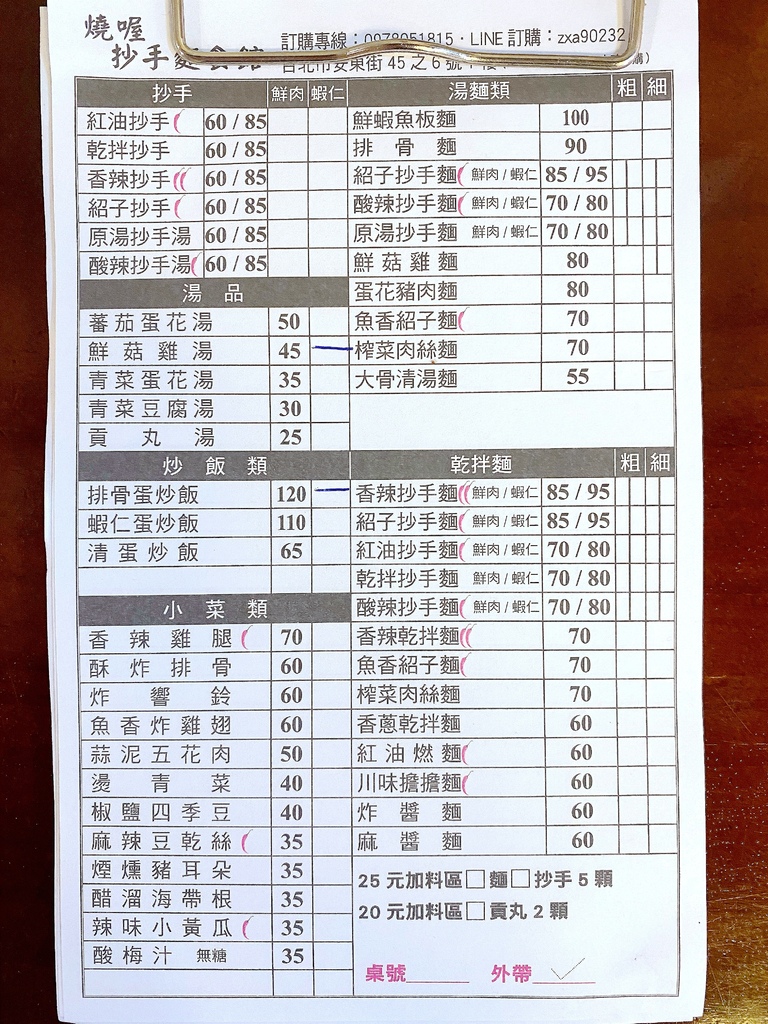 燒喔
抄手麵食館
訂購專線：0978051815．LINE 訂購：zxa90232
台北市安東街 45 之 6 號 1 樓
購）
抄手 鮮肉 蝦仁
紅油抄手 60 / 85
乾拌抄手 60 / 85
香辣抄手 60 / 85
紹子抄手 60 / 85
原湯抄手湯 60 / 85
酸辣抄手湯 60 / 85
湯品
蕃茄蛋花湯 50
鮮菇雞湯 45
青菜蛋花湯 35
青菜豆腐湯 30
貢丸湯 25
炒飯類
排骨蛋炒飯 120
蝦仁蛋炒飯 110
清蛋炒飯 65
小菜類
香辣雞腿 70
酥炸排骨 60
炸響鈴 60
魚香炸雞翅 60
蒜泥五花肉 50
燙青菜 40
椒鹽四季豆 40
麻辣豆乾絲 35
煙燻豬耳朵 35
醋溜海帶根 35
辣味小黃瓜 35
酸梅汁 無糖 35
湯麵類 粗 細
鮮蝦魚板麵 100
排骨麵 90
紹子抄手麵 鮮肉 / 蝦仁 85 / 95
酸辣抄手麵 鮮肉 / 蝦仁 70 / 80
原湯抄手麵 鮮肉 / 蝦仁 70 / 80
鮮菇雞麵 80
蛋花豬肉麵 80
魚香紹子麵 70
榨菜肉絲麵 70
大骨清湯麵 55
乾拌麵 粗 細
香辣抄手麵 鮮肉 / 蝦仁 85 / 95
紹子抄手麵 鮮肉 / 蝦仁 85 / 95
紅油抄手麵 鮮肉 / 蝦仁 70 / 80
乾拌抄手麵 鮮肉 / 蝦仁 70 / 80
酸辣抄手麵 鮮肉 / 蝦仁 70 / 80
香辣乾拌麵 70
魚香紹子麵 70
榨菜肉絲麵 70
香蔥乾拌麵 60
紅油燃麵 60
川味擔擔麵 60
炸醬麵 60
麻醬麵 60
25 元加料區□麵□抄手 5 顆
20 元加料區□貢丸 2 顆
桌號 外帶